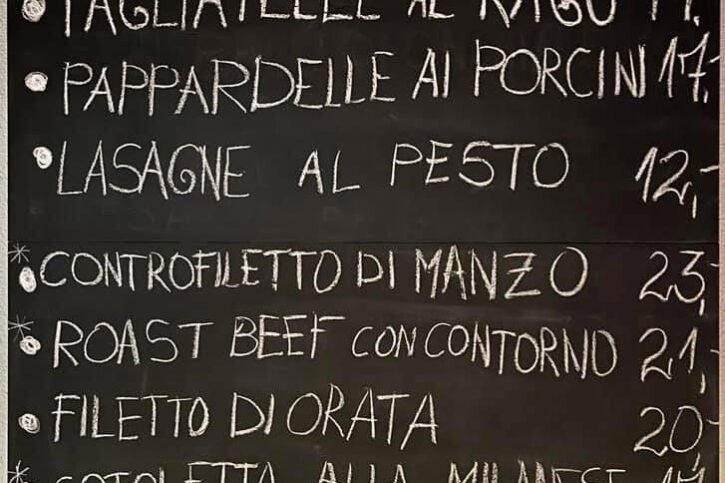 TAGLIATELLE AL RAGU
PAPPARDELLE AI PORCINI 17,-
LASAGNE AL PESTO 12,-
* CONTROFILETTO DI MANZO 23,-
* ROAST BEEF CON CONTORNO 21,-
FILETTO DI ORATA 20,-
* COTOLETTA ALLA MILANESE